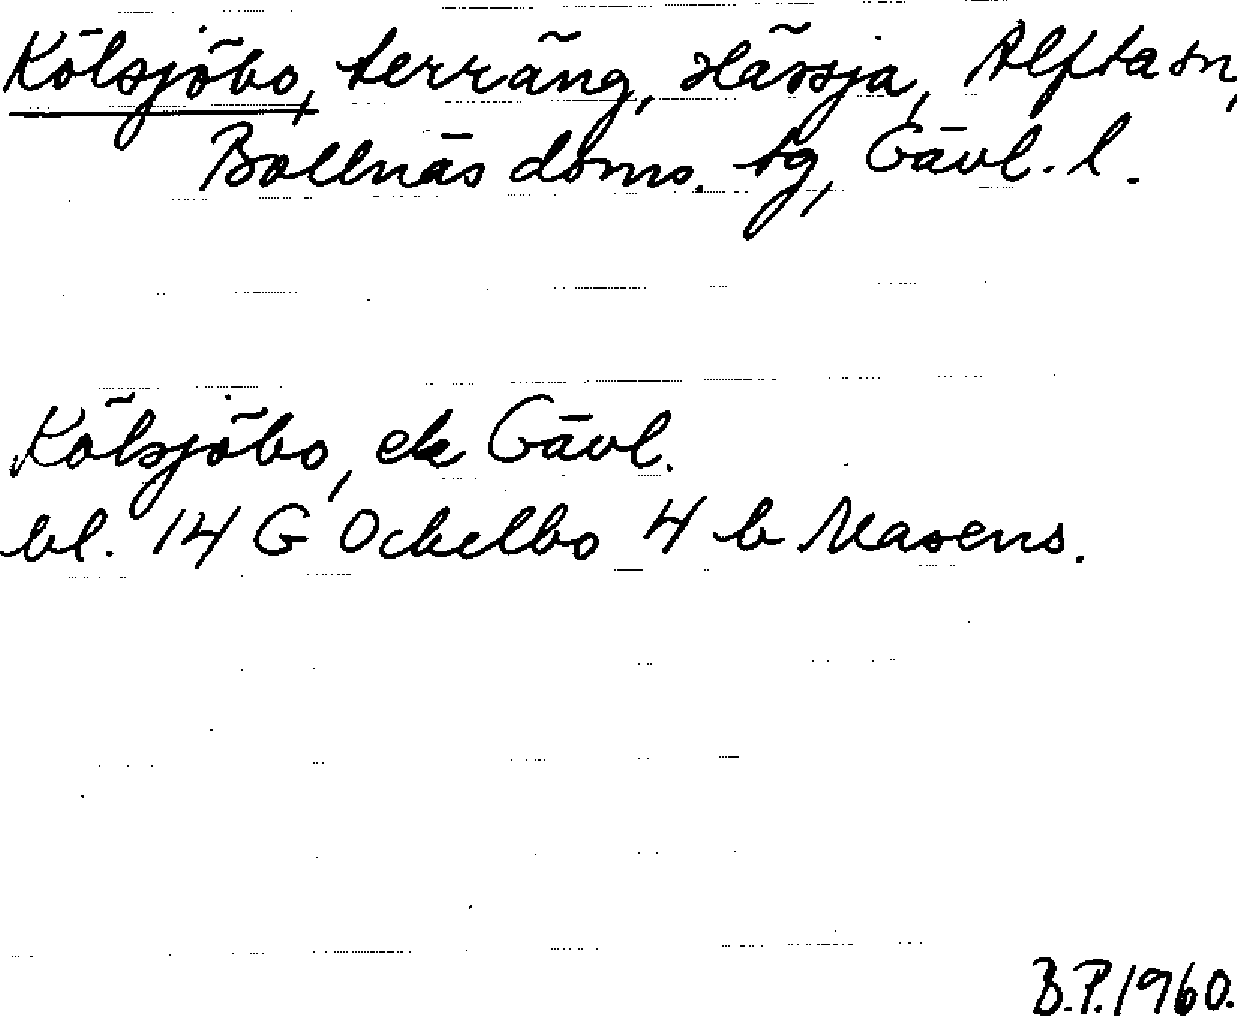 Kölsjöbo, terräng, Hässja, Alfta sn,
Bollnäs doms. tg, Gävl. l.
Kölsjöbo, ek Gävl.
bl. 14 G Ockelbo 4 b Masens.
B.P. 1960.